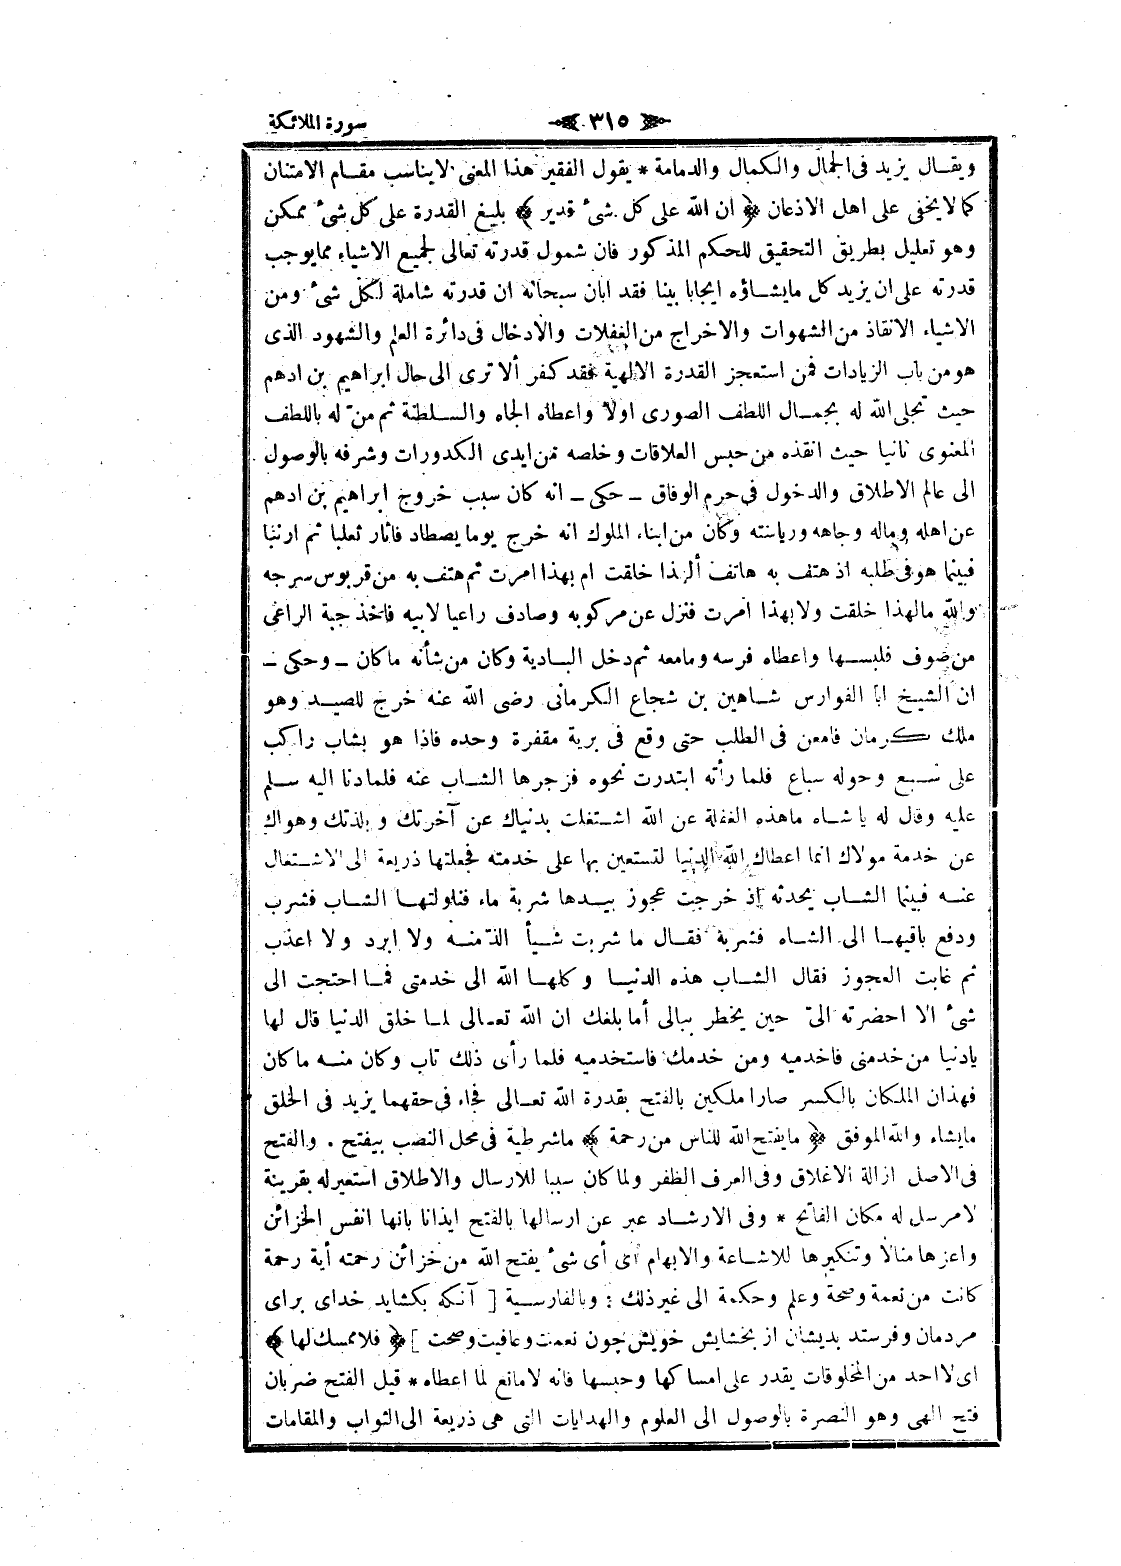 سورة الملائكة ﴿ ٣١٥ ﴾
ويقال يزيد فى الجمال والكمال والدمامة * يقول الفقير هذا المعنى لايناسب مقام الامتنان
كما لايخفى على اهل الاذعان ﴿ ان الله على كل شىء قدير ﴾ بليغ القدرة على كل شىء ممكن
وهو تعليل بطريق التحقيق للحكم المذكور فان شمول قدرته تعالى لجميع الاشياء ممايوجب
قدرته على ان يزيد كل مايشاؤه ايجابا بينا فقد ابان سبحانه ان قدرته شاملة لكل شىء ومن
الاشياء الانقاذ من الشهوات والاخراج من الغفلات والادخال فى دائرة العلم والشهود الذى
هو من باب الزيادات فمن استعجز القدرة الالهية فقد كفر ألا ترى الى حال ابراهيم بن ادهم
حيث تجلى الله له بجمال اللطف الصورى اولا واعطاه الجاه والسلطنة ثم منّ له باللطف
المعنوى ثانيا حيث انقذه من حبس العلاقات وخلصه من ايدى الكدورات وشرفه بالوصول
الى عالم الاطلاق والدخول فى حرم الوفاق ـ حكى ـ انه كان سبب خروج ابراهيم بن ادهم
عن اهله وماله وجاهه ورياسته وكان من ابناء الملوك انه خرج يوما يصطاد فاثار ثعلبا ثم ارنبا
فبينما هو فى طلبه اذ هتف به هاتف ألهذا خلقت ام بهذا امرت ثم هتف به من قربوس سرجه
والله مالهذا خلقت ولا بهذا امرت فنزل عن مركوبه وصادف راعيا لابيه فاخذ جبة الراعى
من صوف فلبسها واعطاه فرسه ومامعه ثم دخل البادية وكان من شأنه ما كان ـ وحكى ـ
ان الشيخ ابا الفوارس شاهين بن شجاع الكرمانى رضى الله عنه خرج للصيد وهو
ملك كرمان فامعن فى الطلب حتى وقع فى برية مقفرة وحده فاذا هو بشاب راكب
على سبع وحوله سباع فلما رأته ابتدرت نحوه فزجرها الشاب عنه فلمادنا اليه سلم
عليه وقال له ياشاه ماهذه الغفلة عن الله اشتغلت بدنياك عن آخرتك وبلذتك وهواك
عن خدمة مولاك انما اعطاك الله الدنيا لتستعين بها على خدمته فجعلتها ذريعة الى الاشتغال
عنه فبينما الشاب يحدثه إذ خرجت عجوز بيدها شربة ماء فناولتها الشاب فشرب
ودفع باقيها الى الشاه فشربه فقال ما شربت شيأ الذّ منه ولا ابرد ولا اعذب
ثم غابت العجوز فقال الشاب هذه الدنيا وكلها الله الى خدمتى فما احتجت الى
شىء الا احضرته الىّ حين يخطر ببالى أما بلغك ان الله تعالى لما خلق الدنيا قال لها
يادنيا من خدمنى فاخدميه ومن خدمك فاستخدميه فلما رأى ذلك تاب وكان منه ما كان
فهذان الملكان بالكسر صارا ملكين بالفتح بقدرة الله تعالى فجاء فى حقهما يزيد فى الخلق
مايشاء والله الموفق ﴿ مايفتح الله للناس من رحمة ﴾ ماشرطية فى محل النصب بيفتح . والفتح
فى الاصل ازالة الاغلاق وفى العرف الظفر ولما كان سببا للارسال والاطلاق استعير له بقرينة
لامرسل له مكان الفاتح * وفى الارشاد عبر عن ارسالها بالفتح ايذانا بانها انفس الخزائن
واعزها منالا وتنكيرها للاشاعة والابهام اى أى شىء يفتح الله من خزائن رحمته أية رحمة
كانت من نعمة وصحة وعلم وحكمة الى غير ذلك : وبالفارسية [ آنكه بكشايد خداى براى
مردمان وفرستد بديشان از بخشايش خويش چون نعمت وعافيت وصحت ] ﴿ فلا ممسك لها ﴾
اى لااحد من المخلوقات يقدر على امساكها وحبسها فانه لامانع لما اعطاه * قيل الفتح ضربان
فتح الهى وهو النصرة بالوصول الى العلوم والهدايات التى هى ذريعة الى الثواب والمقامات